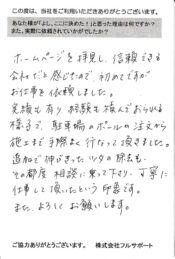 この度は、当社をご利用いただきありがとうございます。
あなた様が「よし、ここに決めた！」と思った理由は何ですか？
また、実際に依頼されていかがでしたか？
ホームページを拝見し、信頼できる
会社だと感じたので、初めてですが
お仕事を依頼しました。
実績も有り経験も積んでおられる
様子で、駐車場のポールの注文から
施工まで手際よく行なって頂きました。
追加で伸びきったツタの除去も
その都度相談に乗って下さり、丁寧に
仕事して頂いたという印象です。
また、よろしくお願いします。
ご協力ありがとうございます。 株式会社フルサポート